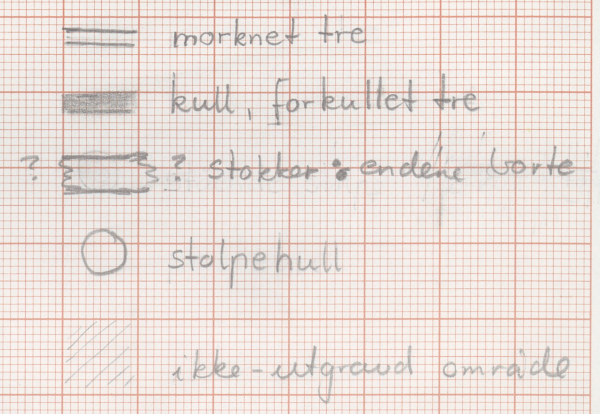 morknet tre
kull, forkullet tre
? ? stokker : endene borte
stolpehull
ikke-utgravd område